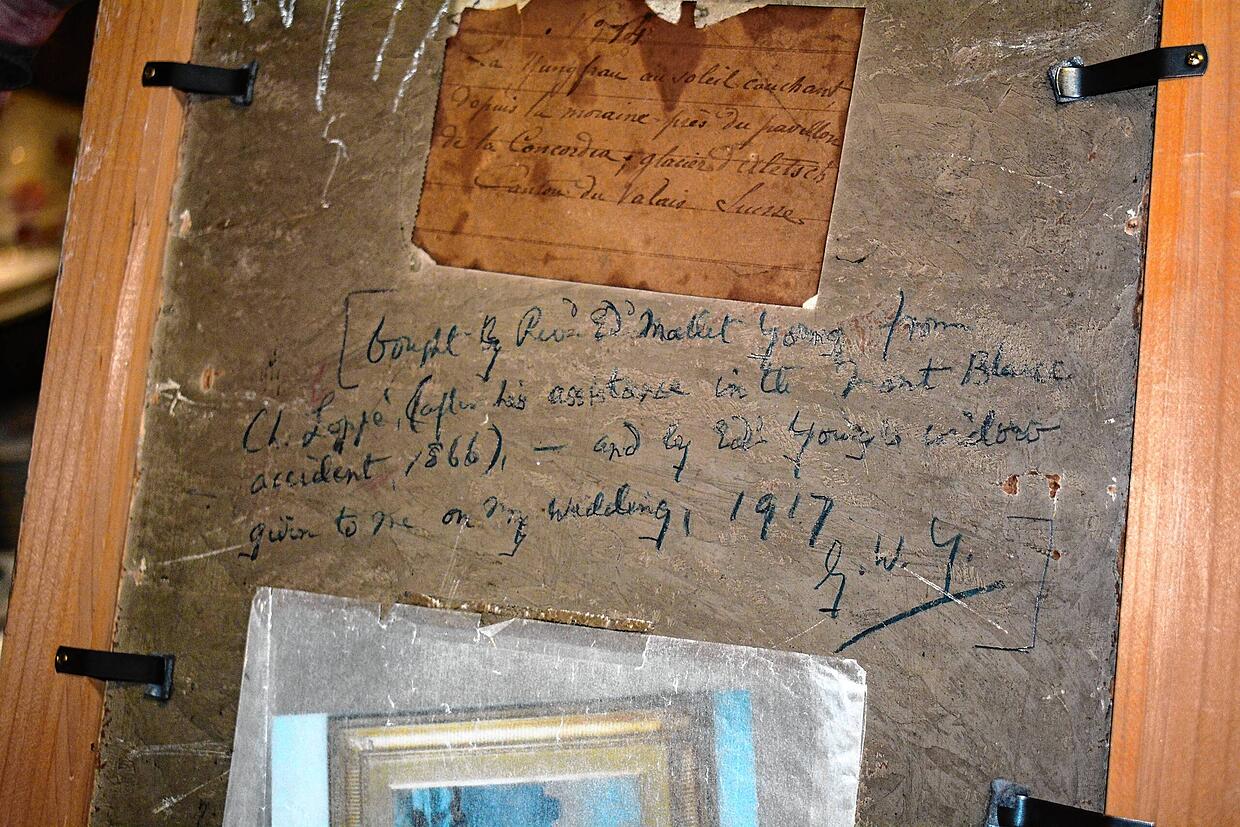 N° 274
La Yungfrau au soleil couchant
depuis la moraine près du pavillon
de la Concordia, glacier d'Aletsch
Canton du Valais Suisse
[bought by Revd Edd Mallet Young from
Ch. Loppé, (after his assistance in the Mont Blanc
accident, 1866), — and by Edd Young's widow
given to me on my wedding, 1917
G. W. Y.]